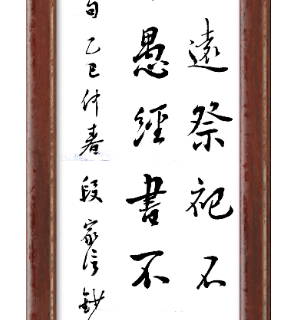 遠祭祀不
愚經書不
句乙巳仲春段家信鈔